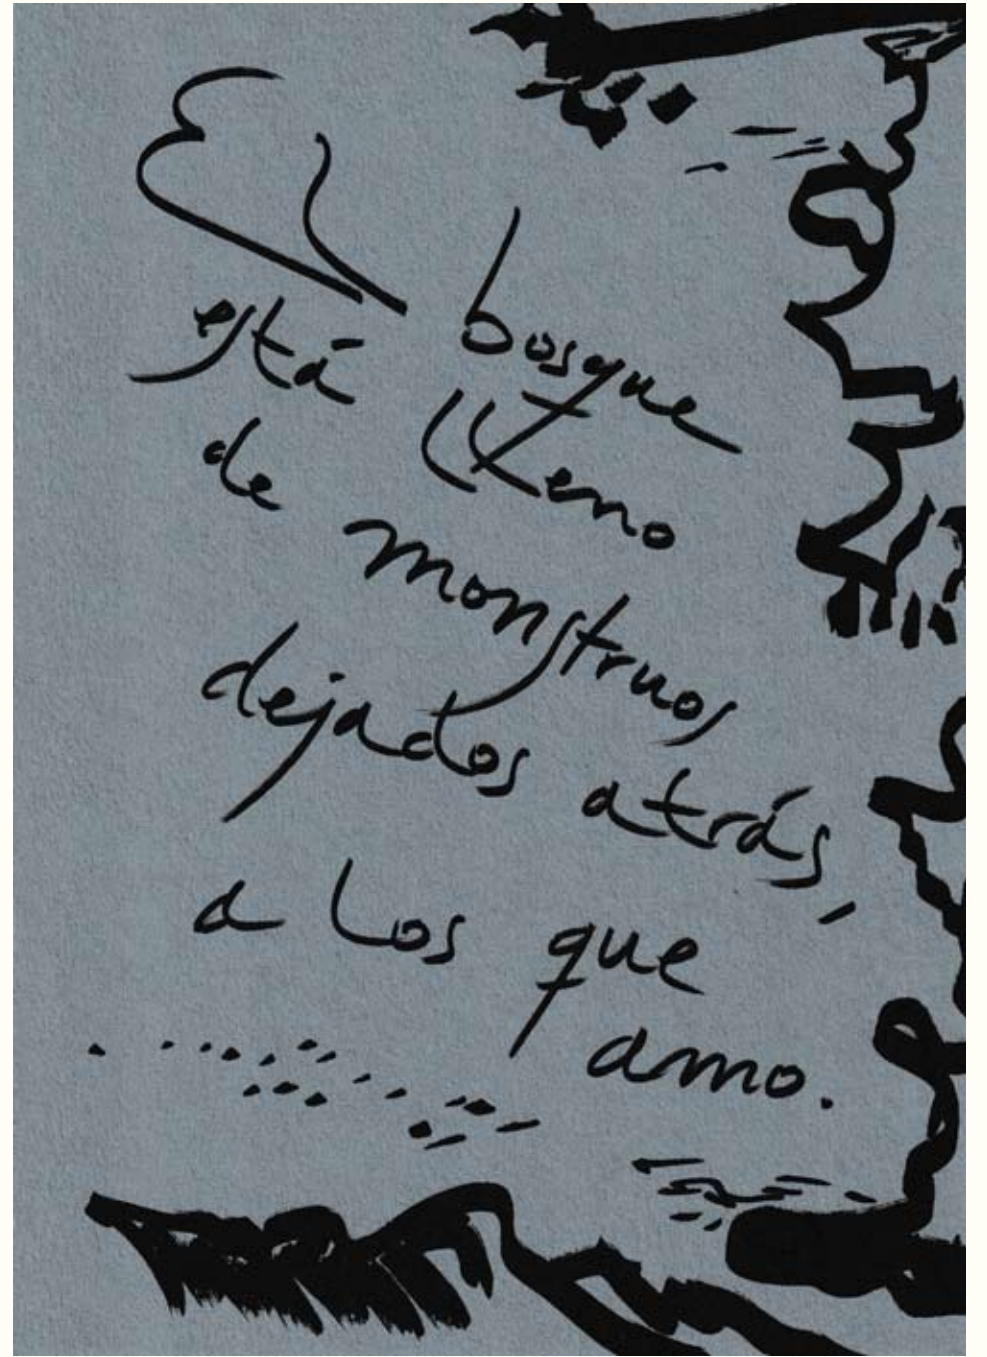 El bosque
está lleno
de monstruos
dejados atrás,
a los que
amo.